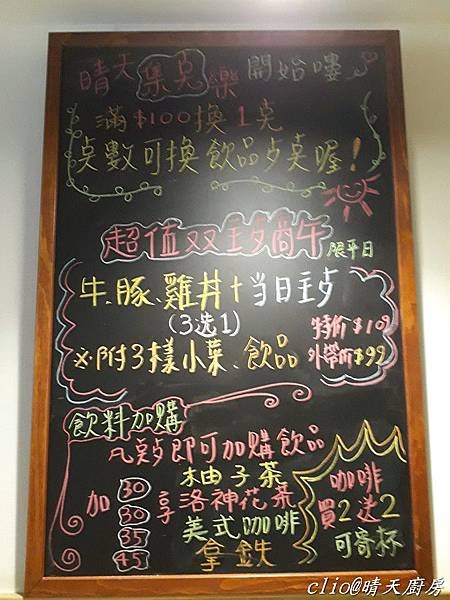 晴天集點樂開始嘍
滿$100換1点
点數可換飲品点喔!
超值双主商午 限平日
牛、豚、雞丼+当日主
(3选1)
特价$109
※附3樣小菜、飲品
外帶价$99
飲料加購
凡即可加購飲品
加30享柚子茶
30洛神花茶
35美式咖啡
45拿鉄
咖啡
買2送2
可寄杯
clio@晴天廚房